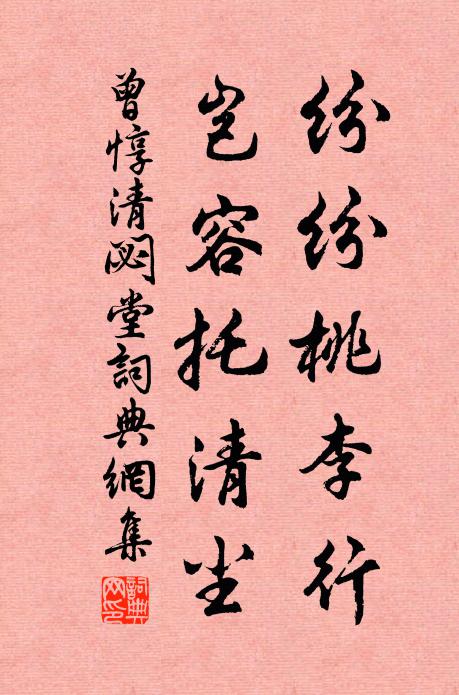 纷纷桃李行
岂容托清尘
曾惇清閟堂詞典網集
詞典網印